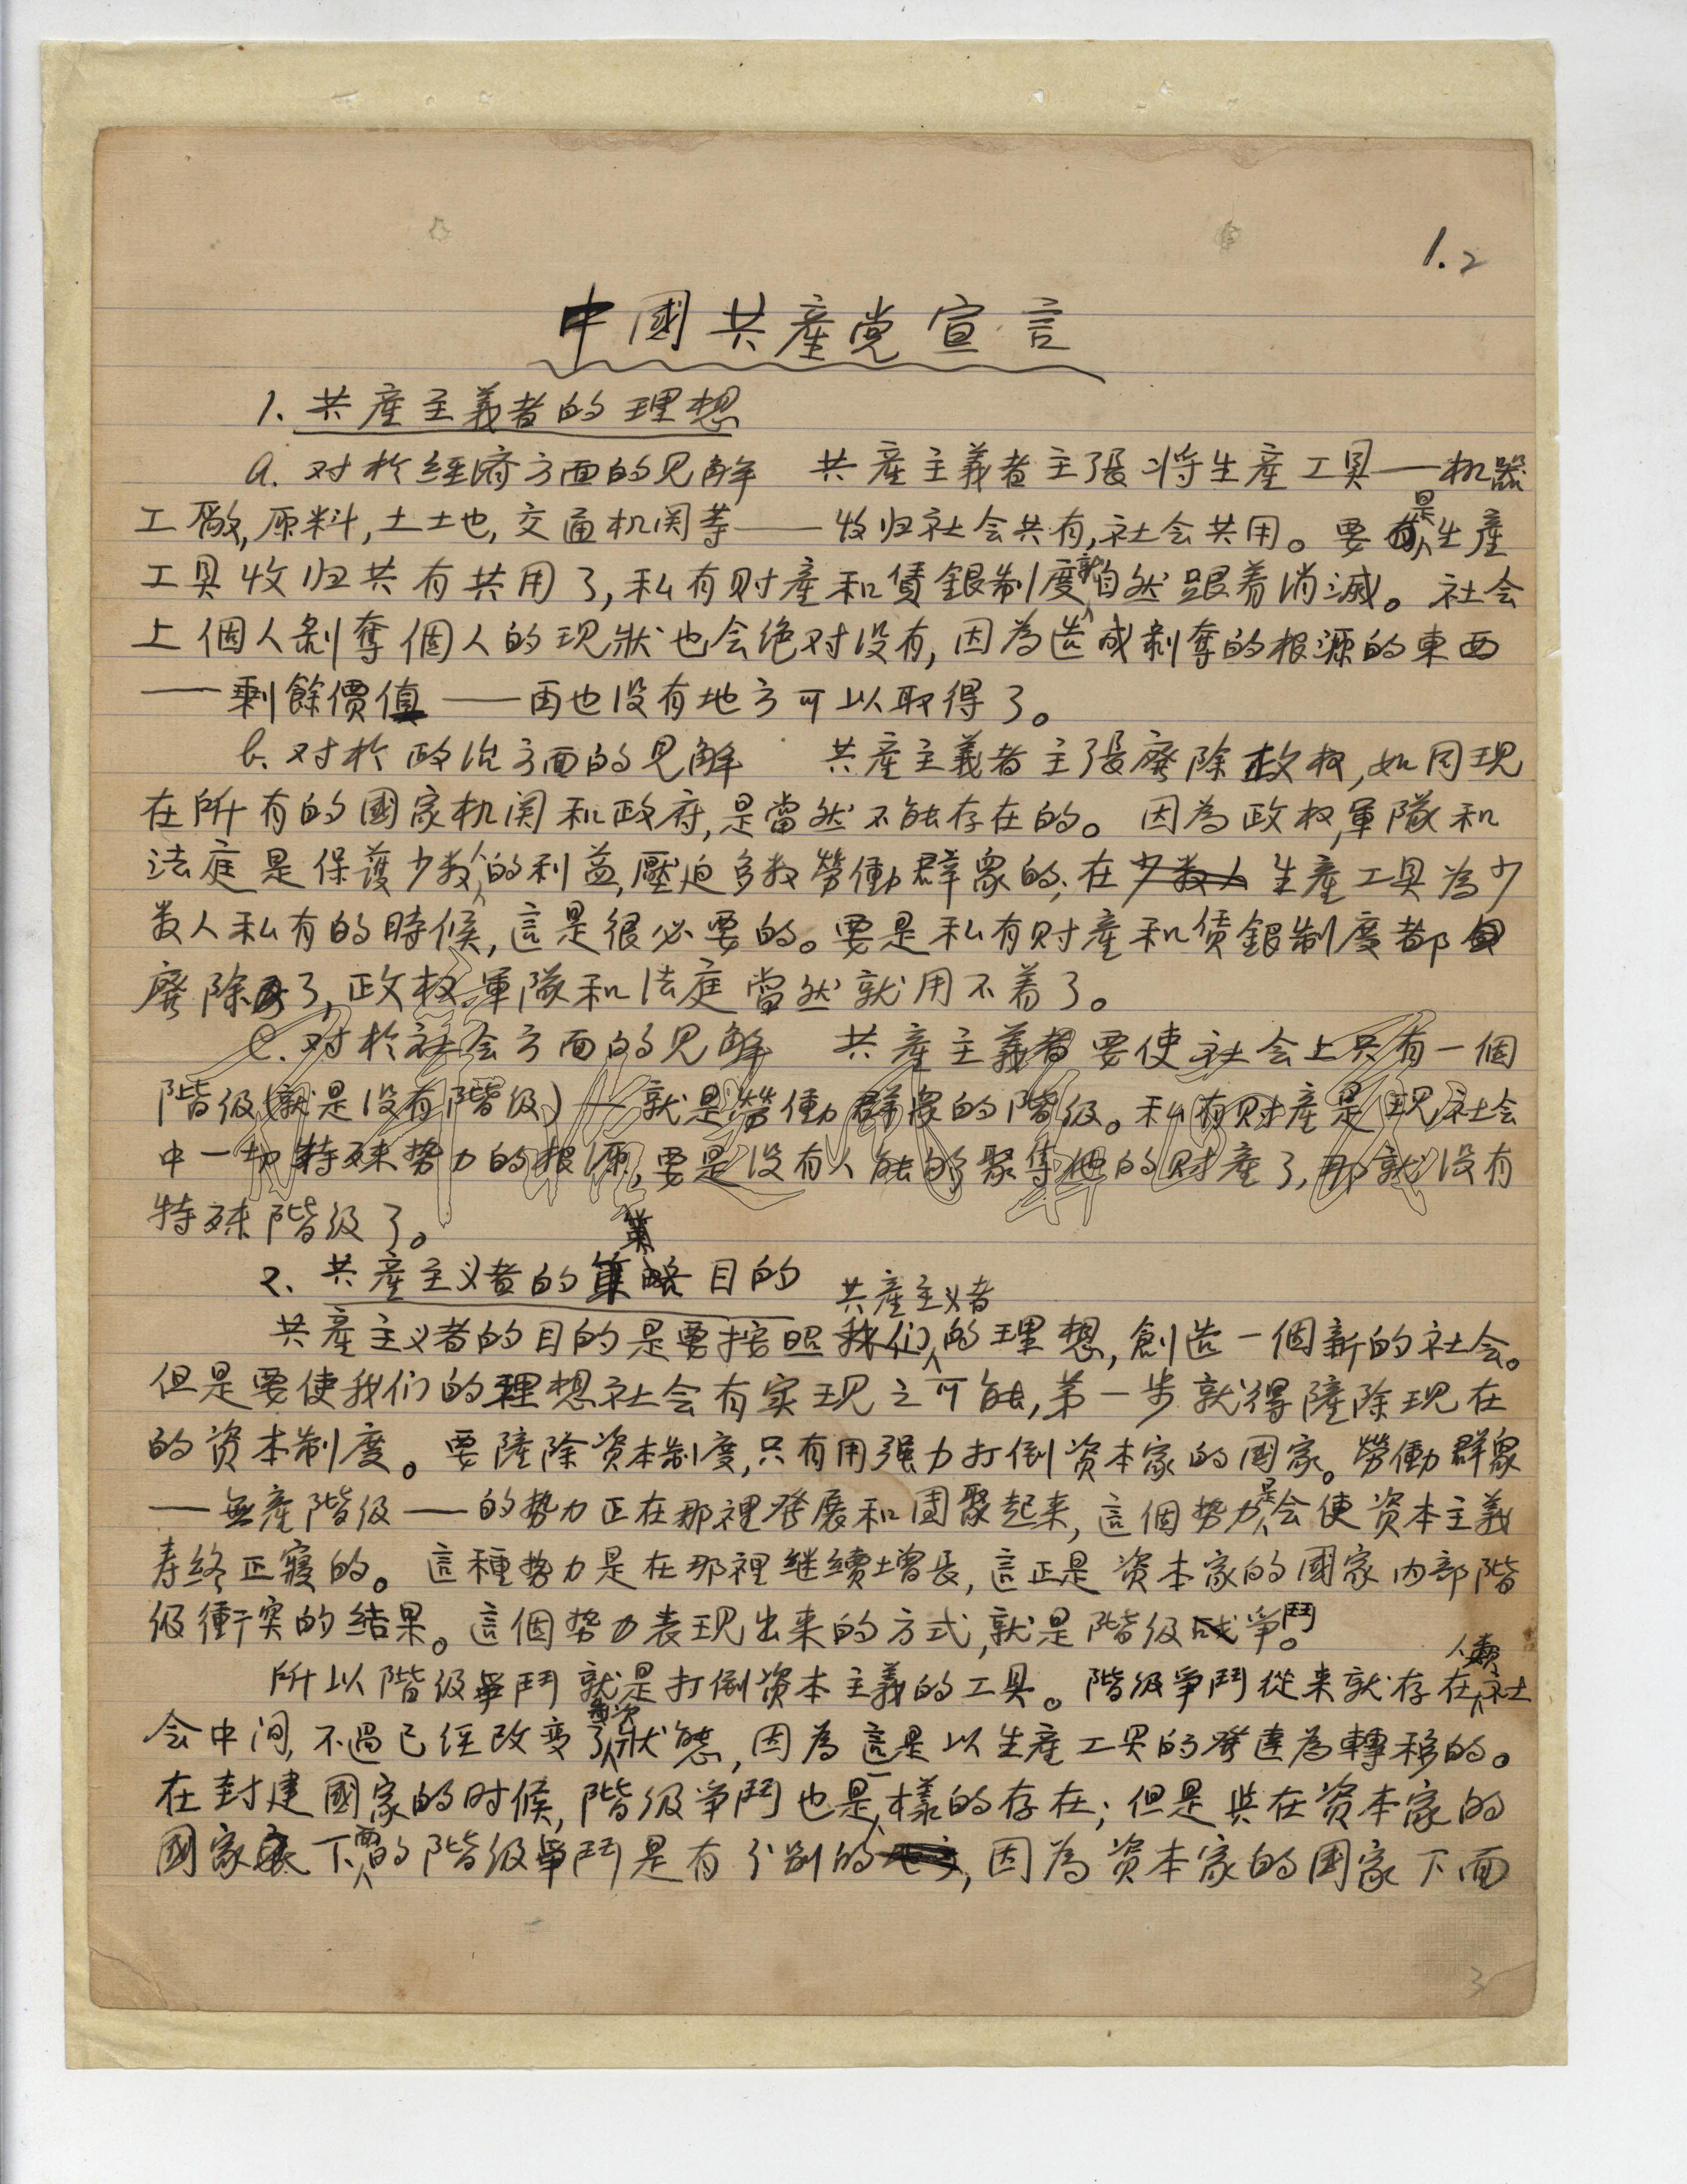 1.2
中國共產党宣言
1. 共產主義者的理想
a. 对於經濟方面的见解 共產主義者主張将生產工具——机器
工廠,原料,土地,交通机関等——收归社会共有,社会共用。要是生產
工具收归共有共用了,私有财產和賃銀制度就自然跟着消滅。社会
上個人剝奪個人的现狀也会绝对没有,因為造成剝奪的根源的東西
——剩餘價值——再也没有地方可以取得了。
b. 对於政治方面的见解 共產主義者主張廢除政权,如同现
在所有的國家机関和政府,是當然不能存在的。因為政权,軍隊和
法庭是保護少数人的利益,壓迫多数勞働群衆的;在少数人生產工具為少
数人私有的時候,這是很必要的。要是私有财產和賃銀制度都
廢除了,政权,軍隊和法庭當然就用不着了。
C. 对於社会方面的见解 共產主義者要使社会上只有一個
階级(就是没有階级)——就是勞働群衆的階级。私有财產是现社会
中一切特殊势力的根源,要是没有人能够聚集他的财產了,那就没有
特殊階级了。
第
2. 共產主义者的目的
共產主义者
共產主义者的目的是要按照我们的理想,創造一個新的社会。
但是要使我们的理想社会有实现之可能,第一步就得剷除现在
的资本制度。要剷除资本制度,只有用强力打倒资本家的國家。勞働群衆
——無產階级——的势力正在那裡發展和團聚起来,這個势力是会使资本主義
寿终正寝的。這種势力是在那裡继續增長,這正是资本家的國家内部階
级衝突的结果。這個势力表现出来的方式,就是階级争鬥。
所以階级争鬥就是打倒资本主義的工具。階级争鬥從来就存在人類社
会中间,不過已經改变了幾次狀態,因為這是以生產工具的發達為轉移的。
在封建國家的时候,階级争鬥也是一樣的存在;但是與在资本家的
國家下面的階级争鬥是有分别的,因為资本家的国家下面
3